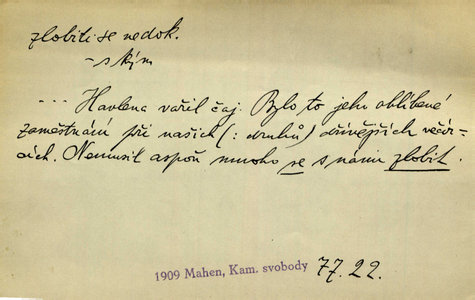 zlobiti se nedok.
- s kým
... Havlena vařil čaj. Bylo to jeho oblíbené
zaměstnání při našich (: druhů) dřívějších večír-
cích. Nemusil aspoň mnoho se s námi zlobit.
1909 Mahen, Kam. svobody 77.22.